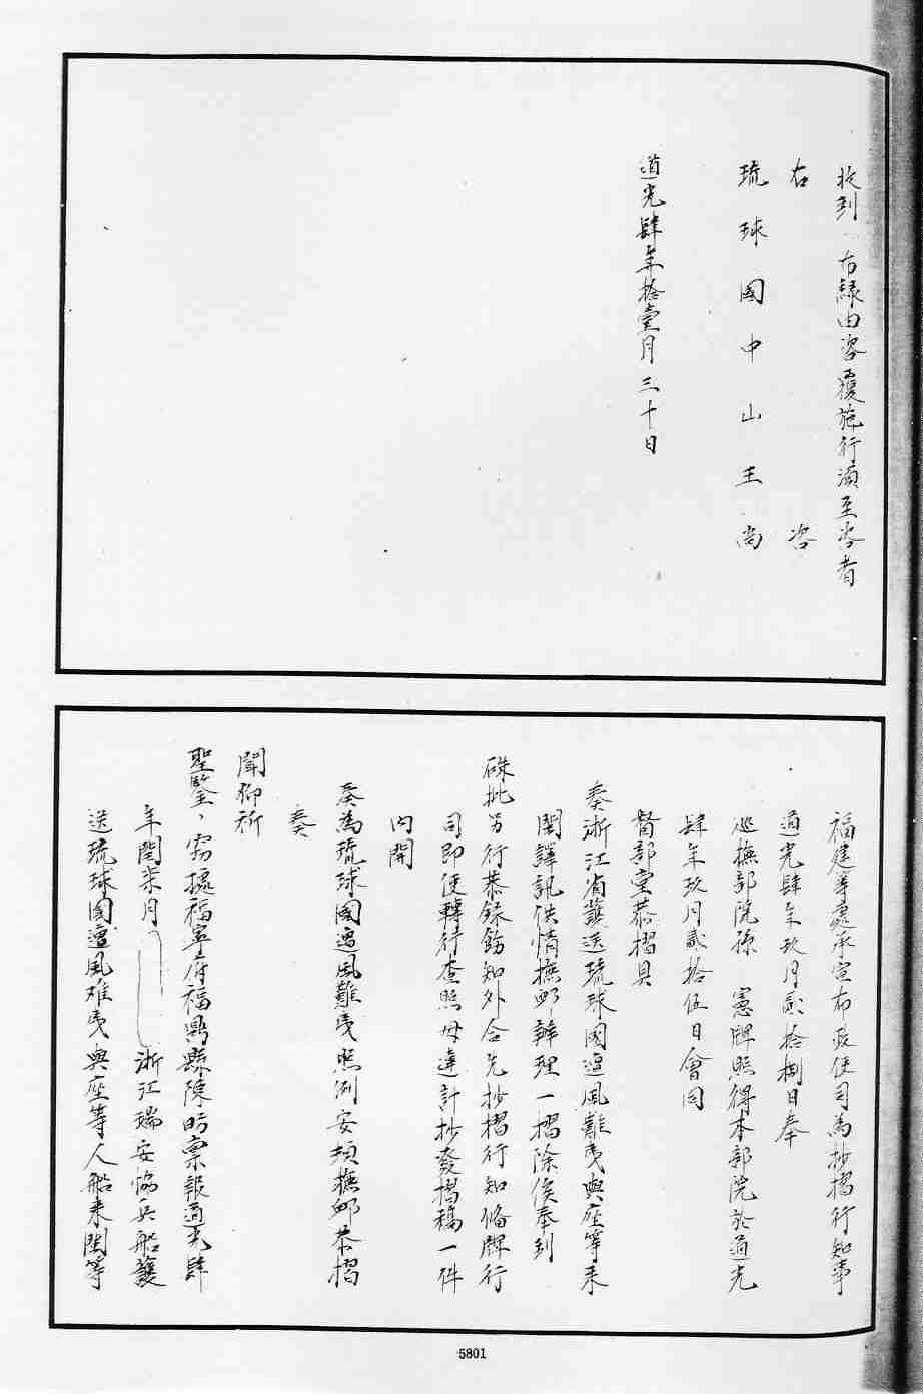 收到一有緣由咨覆施行須至咨者
右 咨
琉球國中山王尚
道光肆年拾壹月三十日
福建等處承宣布政使司為抄摺行知事
道光肆年玖月貳拾捌日奉
巡撫部院孫 憲牌照得本部院於道光
肆年玖月貳拾伍日會同
督部堂恭摺具
奏浙江省護送琉球國遭風難夷與座等來
閩譯訊供情撫卹辦理一摺除俟奉到
硃批另行恭錄飭知外合先抄摺行知備牌行
司即便轉行查照毋違計抄發摺稿一件
內開
奏為琉球國遭風難夷照例安頓撫卹恭摺
奏
聞仰祈
聖鑒、竊據福寧府福鼎縣陳昉稟報道光肆
年閏柒月 浙江瑞安協兵船護
送琉球國遭風难夷與座等人船來閩等
5801